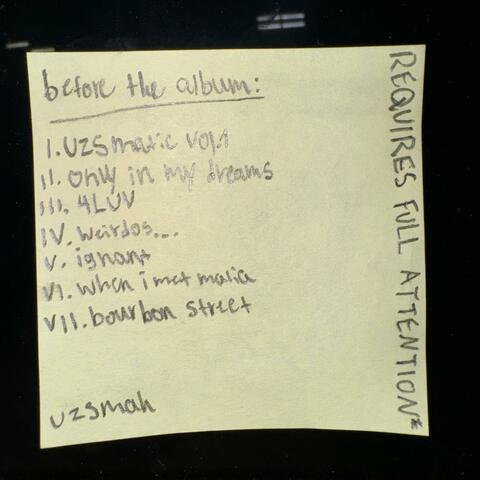 before the album:
I. uzsmatic vol.1
II. only in my dreams
III. 4LUV
IV. weirdos...
V. ignant
VI. when i met malia
VII. bourbon street
uzsmah
REQUIRES FULL ATTENTION*